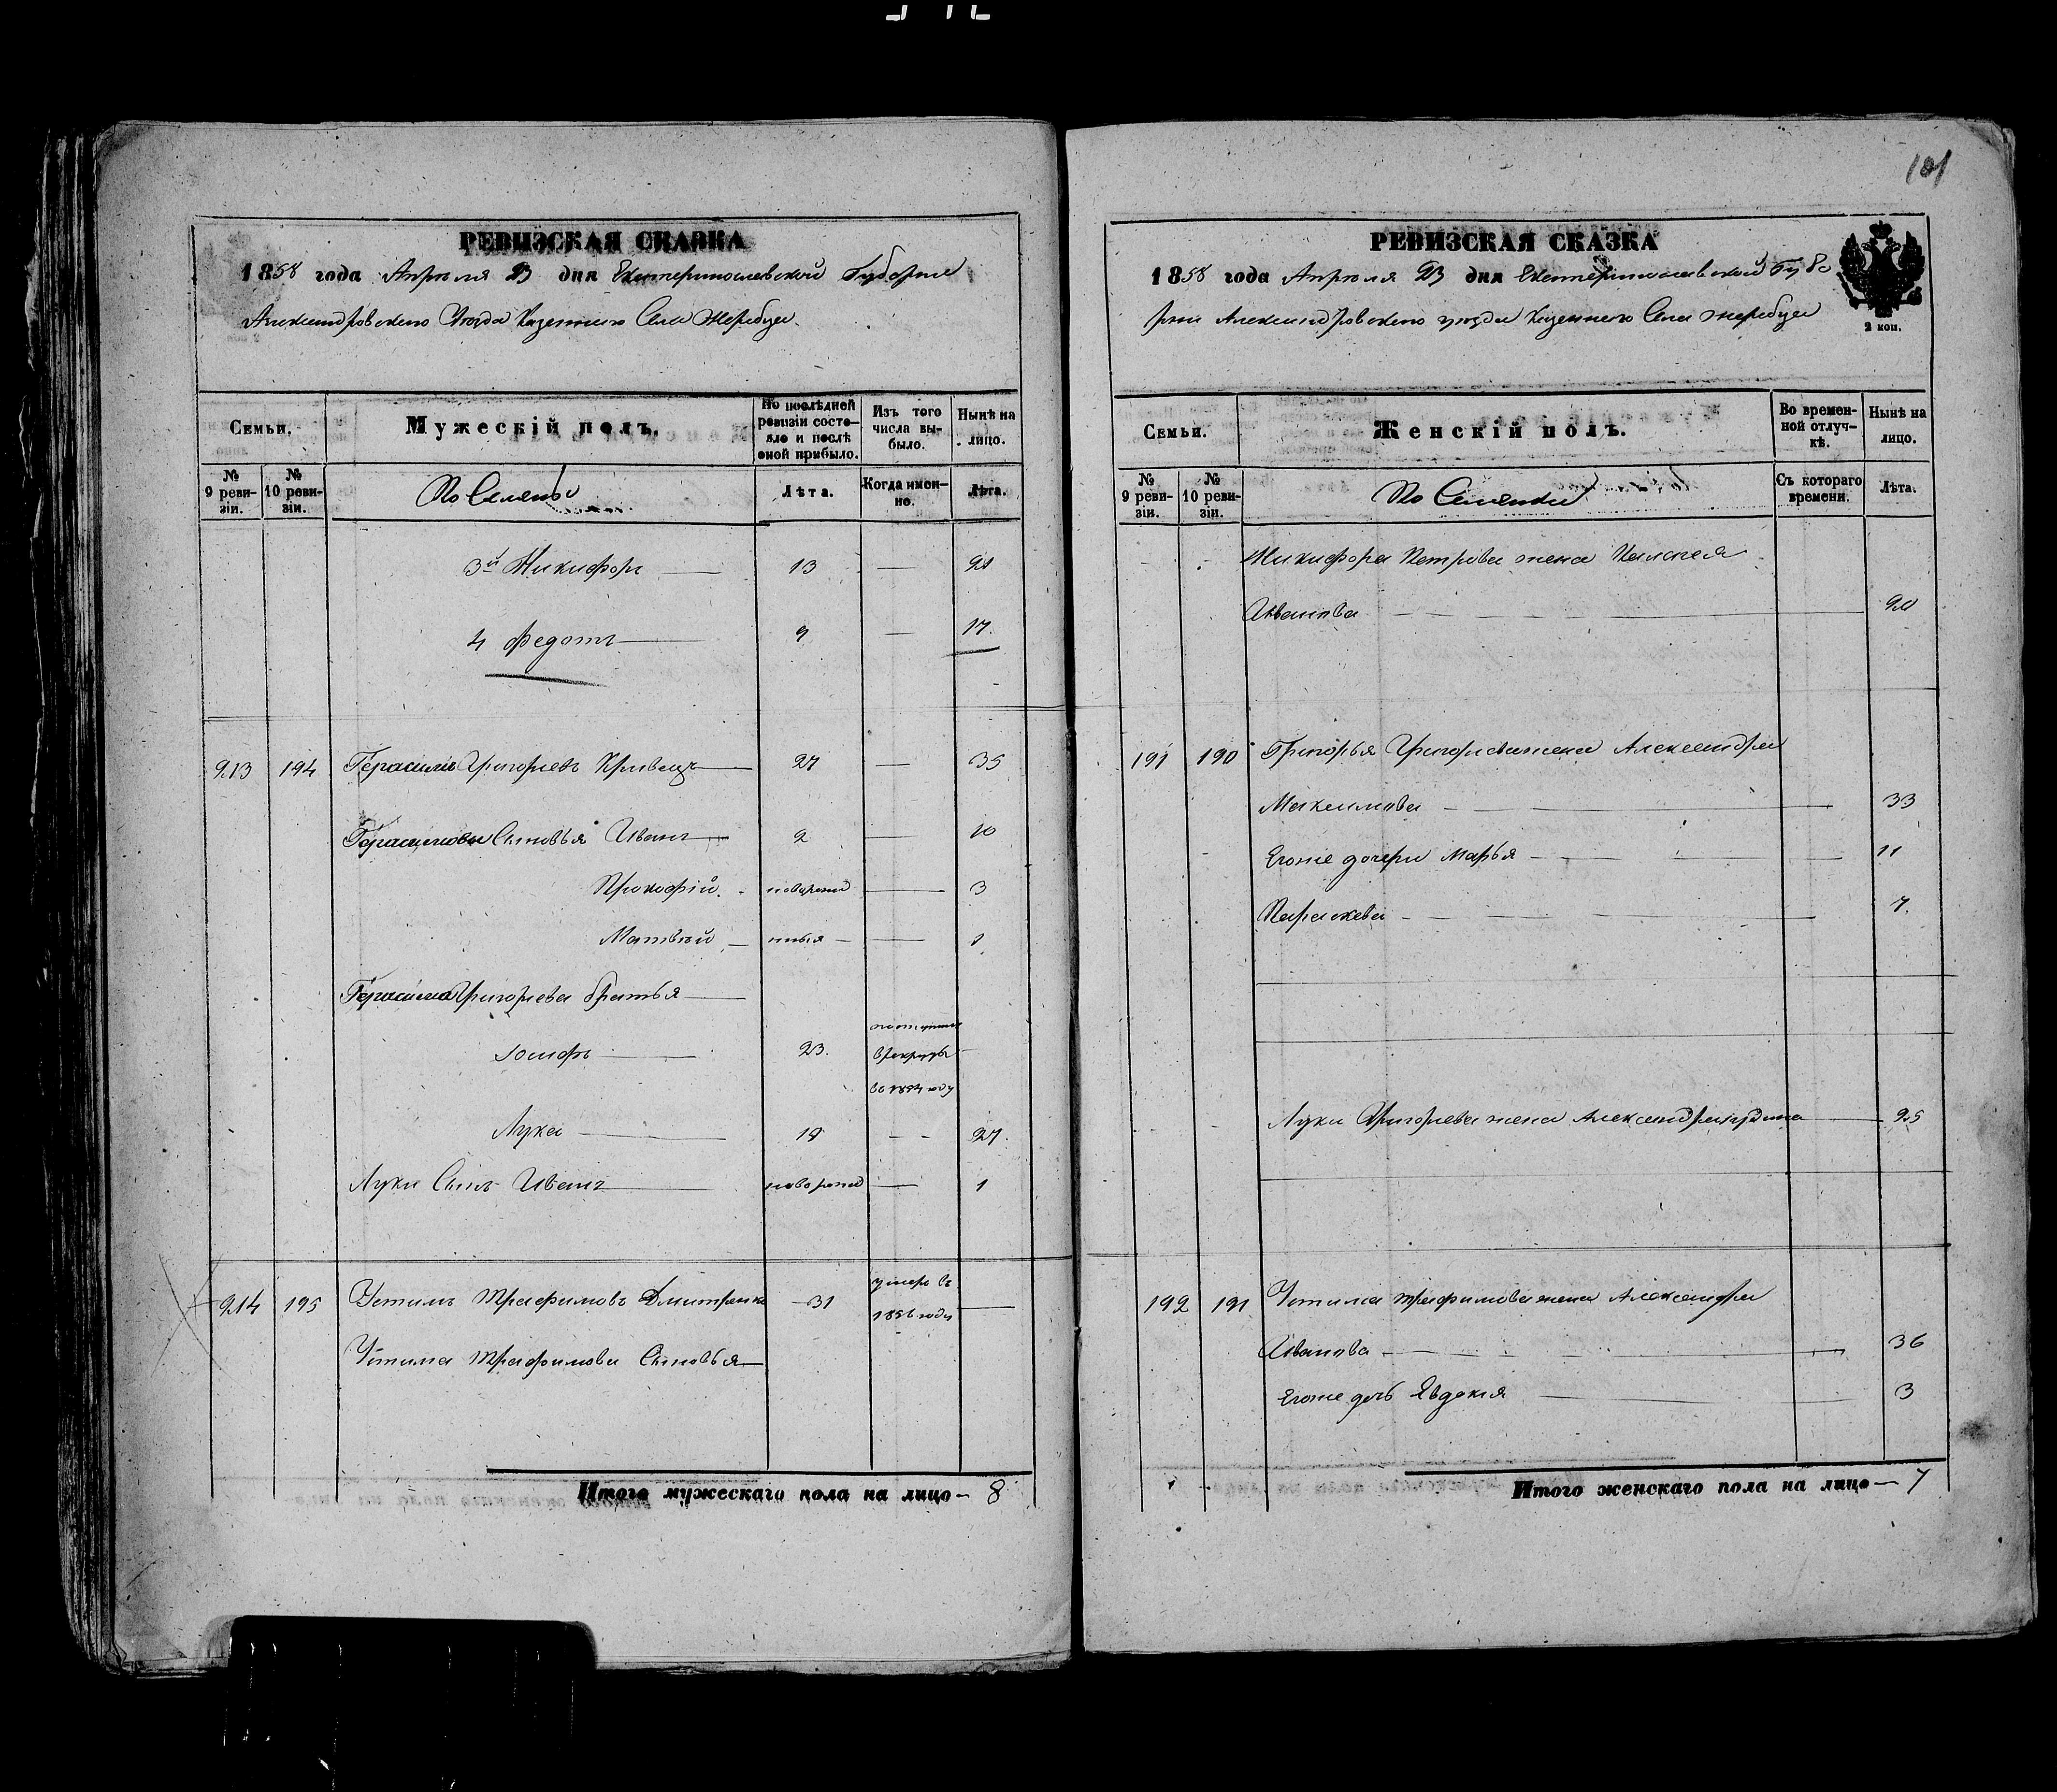 101
РЕВИЗСКАЯ СКАЗКА
1858 года Апреля 23 дня Екатеринославской Губернии
Александровскаго Уезда Казеннаго Села Жеребца
Семьи.
Мужескій полъ.
По послѣдней ревизіи состояло и послѣ оной прибыло.
Изъ того числа выбыло.
Нынѣ на лицо.
№ 9 ревизіи.
№ 10 ревизіи.
Лѣта.
Когда именно.
Лѣта.
3й Никифоръ 13 — 21
4 Федотъ 9 — 17.
213 194 Герасимъ Григорьевъ Кривецъ 27 — 35
Герасимовы Сыновья Иванъ 2 — 10
Прокофій новорожд — 3
Матвѣй нныя — 1
Герасима Григорьева братья
Іосифъ 23. поступилъ
в рекруты
во 1854 году
Лука 19 — 27.
Луки Сынъ Иванъ новорожд — 1
214 195 Устимъ Трафимовъ Дмитренко 31 умеръ въ
1856 году
Устима Трафимова Сыновья
Итого мужескаго пола на лицо — 8
РЕВИЗСКАЯ СКАЗКА
1858 года Апреля 23 дня Екатеринославской Губе
рнии Александровскаго уезда Казеннаго Села Жеребца
2 коп.
Семьи.
Женскій полъ.
Во временной отлучкѣ.
Нынѣ на лицо.
№ 9 ревизіи.
№ 10 ревизіи.
Съ котораго времени.
Лѣта.
Никифора Петрова жена
Иванова 20
191 190 Григорья Григорьева жена Александра
Максимова 33
Егоже дочери Марья 11
Параскева 7.
Луки Григорьева жена Александра 25
192 191 Устима Трафимова жена Александра
Иванова 36
Егоже дочь Евдокия 3
Итого женскаго пола на лицо — 7